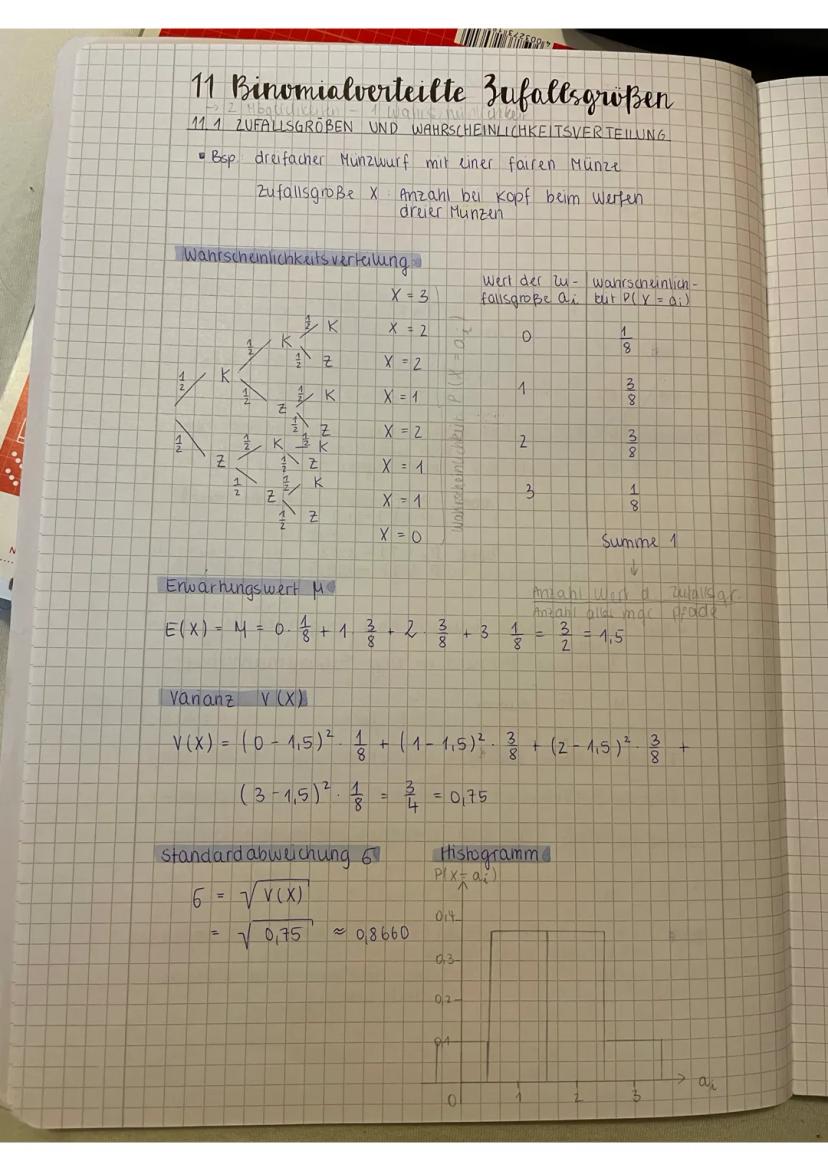 11 Binomialverteilte Zufallsgrößen
11.1 ZUFALLSGRÖßEN UND WAHRSCHEINLICHKEITSVERTEILUNG
▪ Bsp dreifacher Münzwurf mit einer fairen Münze
Zufallsgröße X Anzahl bei Kopf beim Werfen
dreier Münzen
Wahrscheinlichkeitsverteilung
Wert der Zu- Wahrscheinlich-
fallsgröße ai keit P(X = ai)
X = 3
X = 2
X = 2
X = 1
X = 2
X = 1
X = 1
X = 0
1/2 K 1/2 K 1/2 K
1/2 Z
1/2 Z 1/2 K
1/2 Z
1/2 Z 1/2 K 1/2 K
1/2 Z
1/2 Z 1/2 K
1/2 Z
Wahrscheinlichkeit P(X = ai)
0 1/8
1 3/8
2 3/8
3 1/8
Summe 1
Erwartungswert μ
Anzahl Wert d Zufallsgr.
Anzahl aller mgl Pfade
E(X) = M = 0 · 1/8 + 1 · 3/8 + 2 · 3/8 + 3 · 1/8 = 3/2 = 1,5
Varianz V(X)
V(X) = (0 - 1,5)² · 1/8 + (1 - 1,5)² · 3/8 + (2 - 1,5)² · 3/8 +
(3 - 1,5)² · 1/8 = 3/4 = 0,75
Standardabweichung б
б = √V(X)
= √0,75 ≈ 0,8660
Histogramm
P(X = ai)
0,4
0,3
0,2
0,1
0 1 2 3 ai